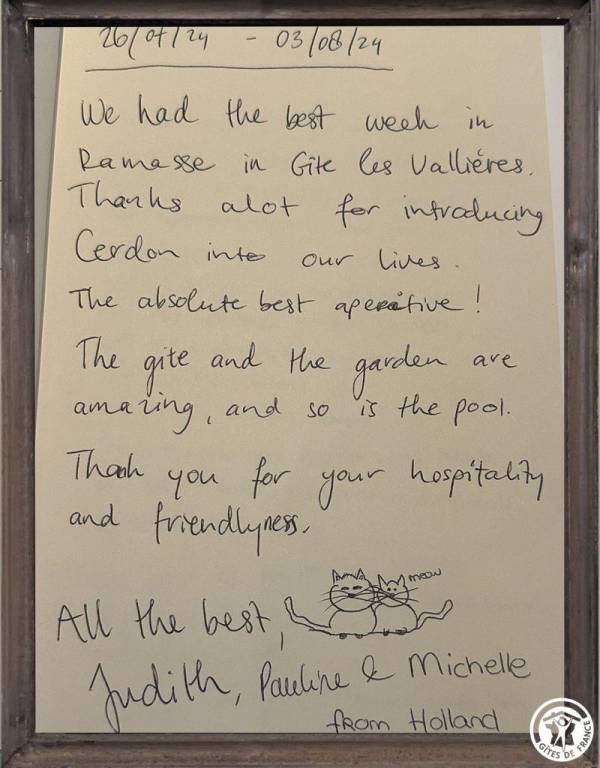 26/07/24 - 03/08/24
We had the best week in
Ramasse in Gîte les Vallières.
Thanks alot for introducing
Cerdon into our lives.
The absolute best aperitive!
The gite and the garden are
amazing, and so is the pool.
Thank you for your hospitality
and friendlyness.
meow
All the best,
Judith, Pauline & Michelle
from Holland
GÎTES DE FRANCE